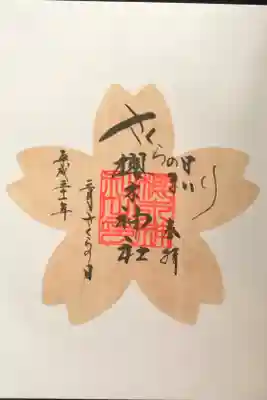 さくらの日まいり
奉拝
櫻木神社
三月さくらの日
平成三十一年